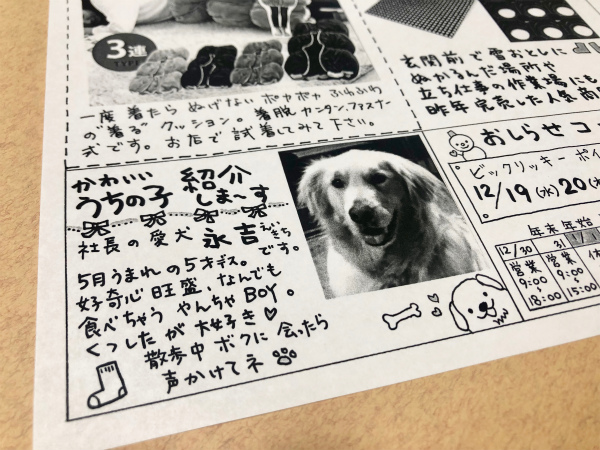 3連
一度着たらぬげない ポカポカ ふわふわ
の"着る"クッション。着脱カンタン、ファスナー
式です。お店で試着してみて下さい。
玄関前で雪おとしに
ぬかるんだ場所や
立ち仕事の作業場にも
昨年完売した人気商
かわいい
うちの子 紹介
しま〜す
社長の愛犬 永吉 えいきち
です。
5月うまれの5才デス。
好奇心旺盛、なんでも
食べちゃう やんちゃBOY。
くつしたが大好き♡
散歩中 ボクに会ったら
声かけてネ
おしらせコ
ビックリッキーポイ
12/19(水)20(木
年末年始
12/30
31
営業
9:00
〜
18:00
営業
9:00
〜
15:00
休